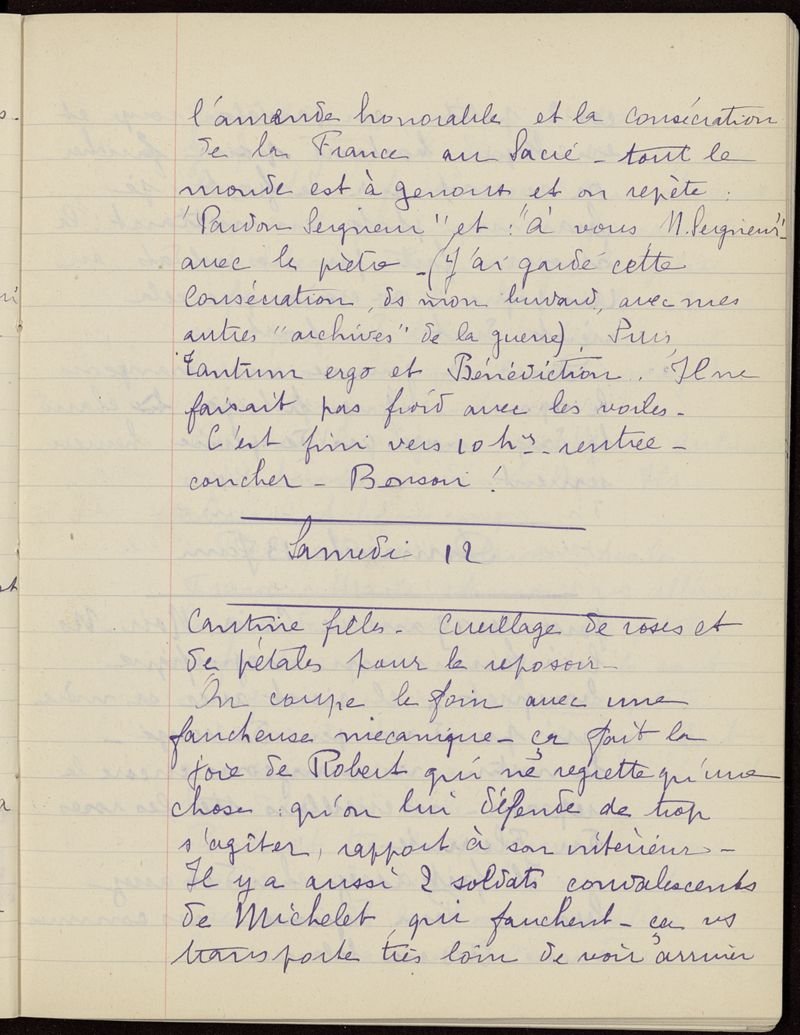 l'amende honorable et la consécration
de la France au Sacré - tout le
monde est à genoux et on repète :
"Pardon Seigneur" et : "à vous N. Seigneur"-
avec le piètre - (J'ai gardé cette
Consécration, ds mon buvard, avec mes
autres "archives" de la guerre). Puis,
Tantum ergo et Bénédiction. Il ne
faisait pas froid avec les voiles -
C'est fini vers 10 hrs - rentrée -
coucher - Bonsoir !
Samedi 12
Cantine filles - Cueillage de roses et
de pétales pour le reposoir -
On coupe le foin avec une
faucheuse mécanique - ça fait la
joie de Robert qui ne regrette qu'une
chose : qu'on lui défende de trop
s'agiter, rapport à son intérieur -
Il y a aussi 2 soldats convalescents
de Michelet, qui fauchent - ça ns
transporte très loin de voir arriver